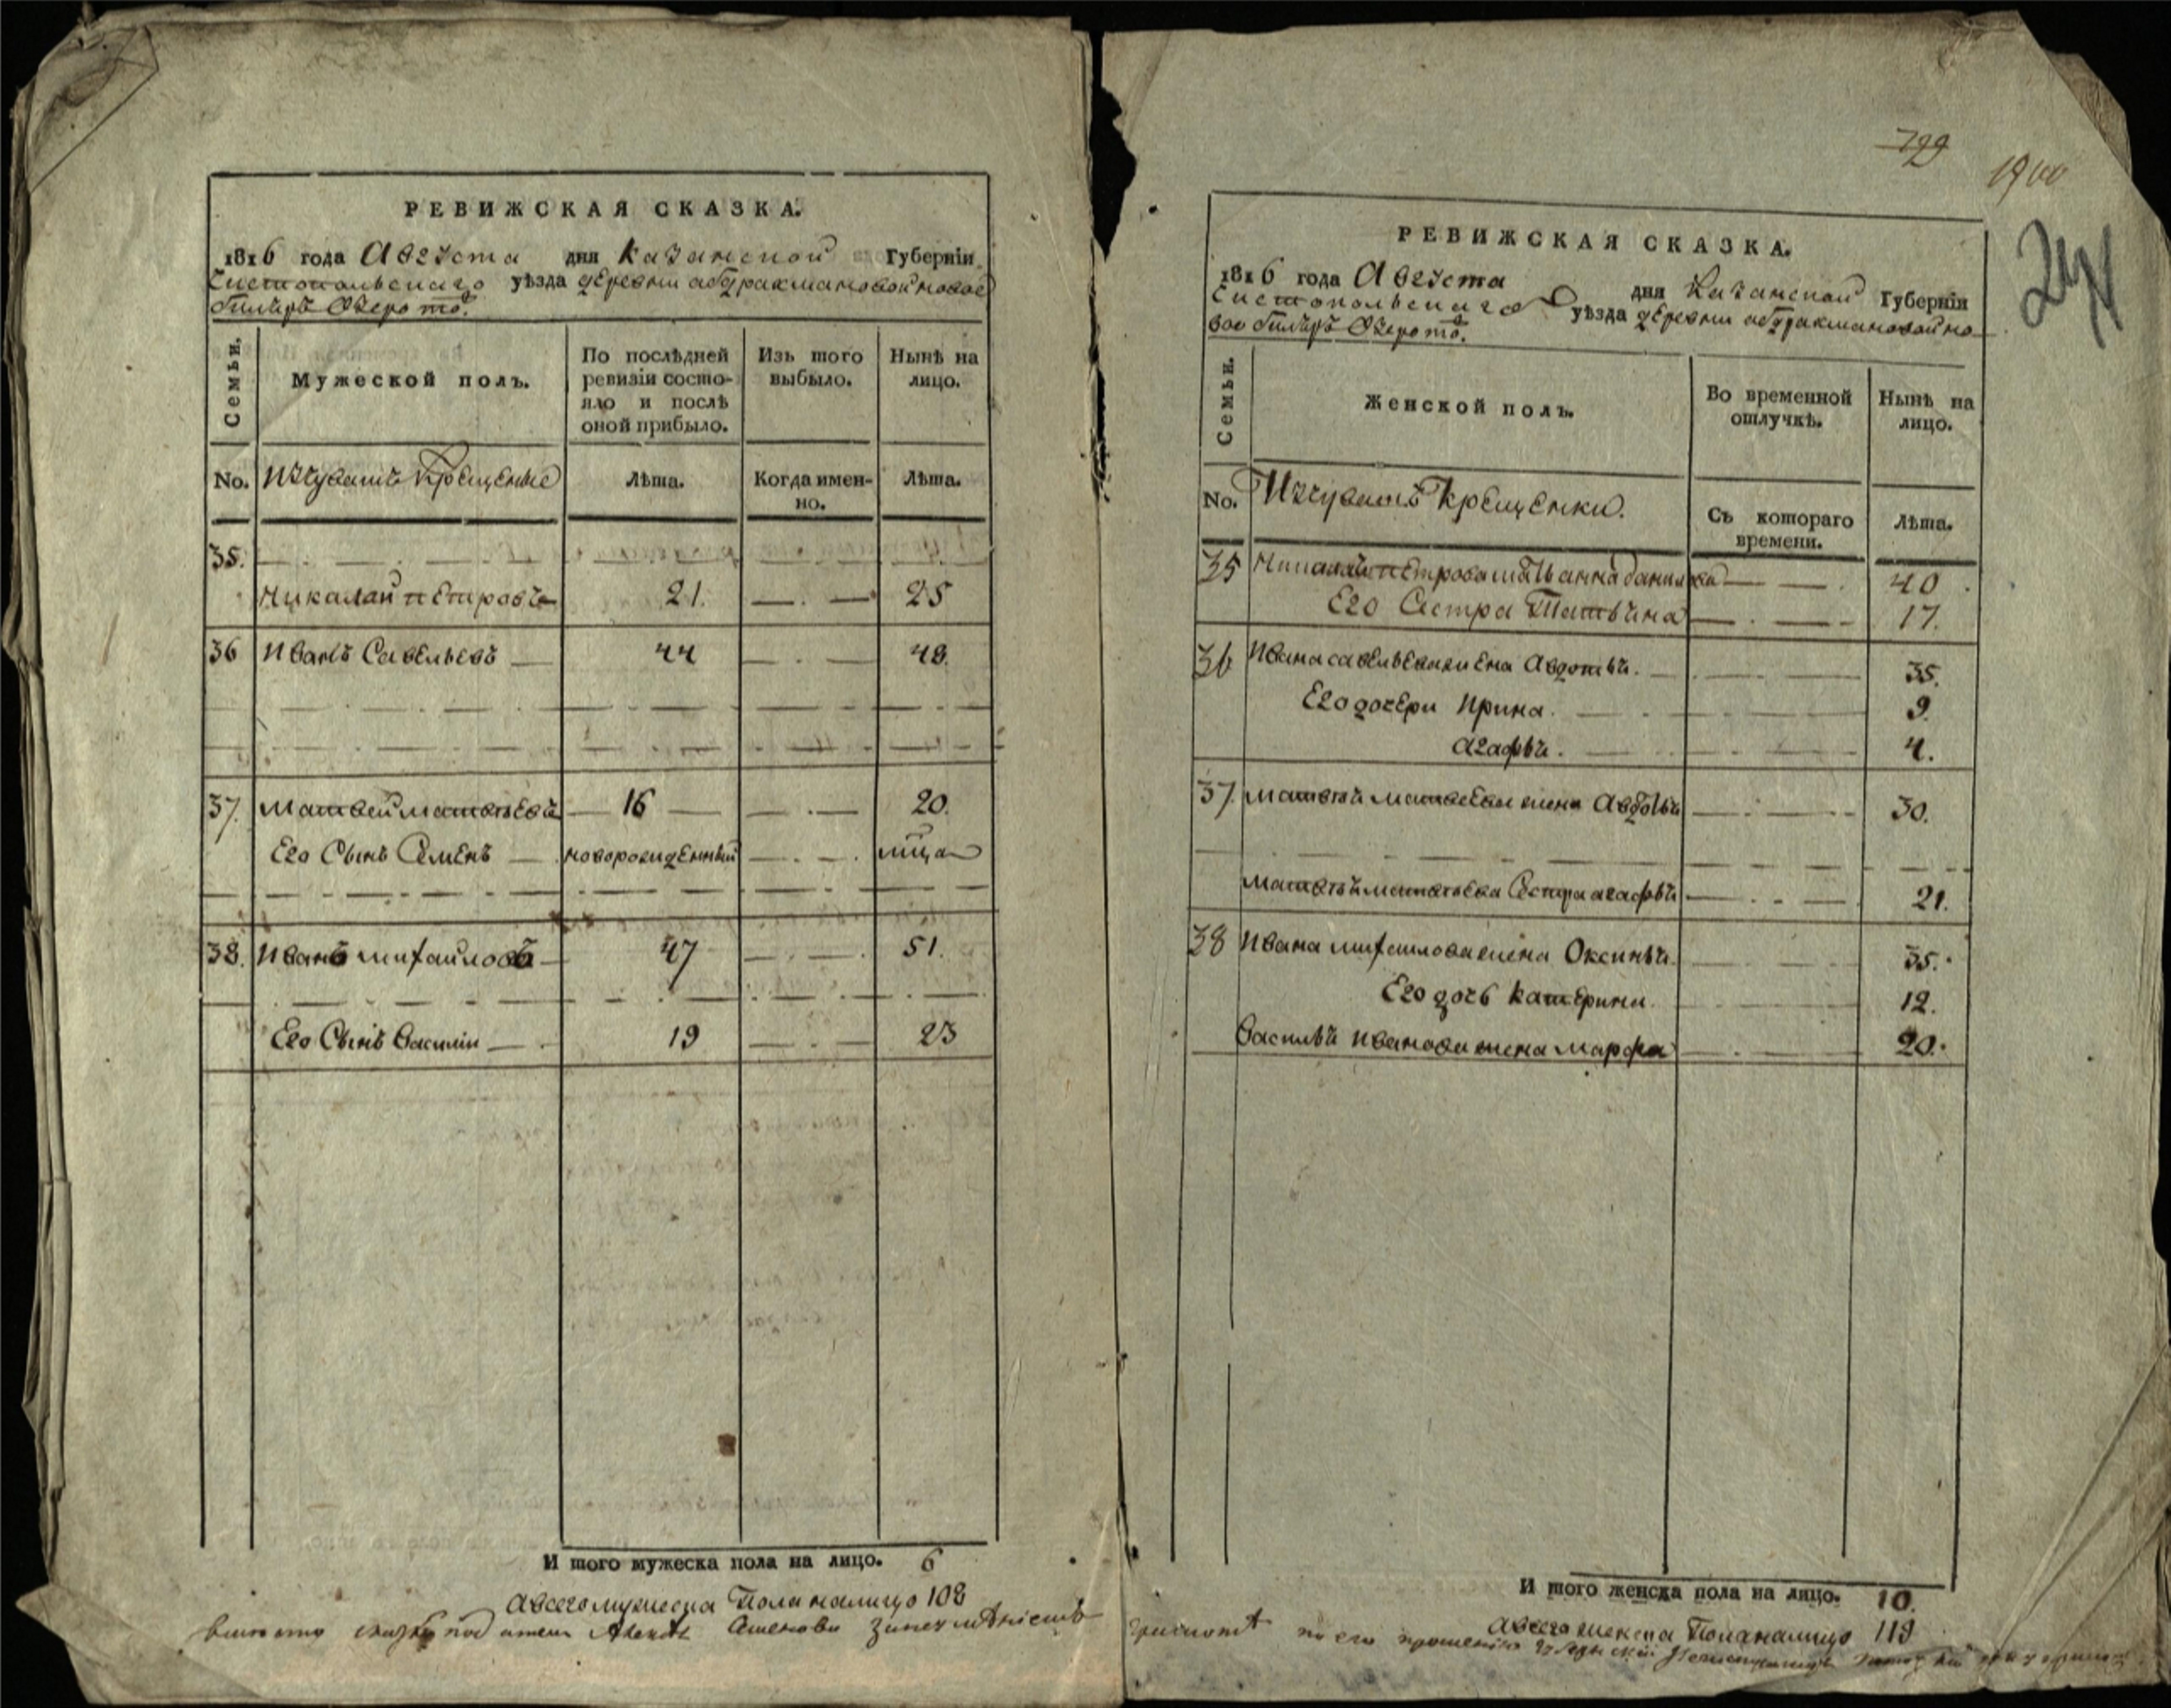 РЕВИЖСКАЯ СКАЗКА.
1816 года Августа дня Казанской Губерніи
Чистопольскаго уѣзда деревни абдракмановой новое
билярь Озеро тѡ.
Семьи.
Мужеской полъ.
По послѣдней ревизіи состояло и послѣ оной прибыло.
Изъ того выбыло.
Нынѣ на лицо.
No. Изчувашъ Крещеные
Лѣта.
Когда именно.
Лѣта.
35.
Николай Петровъ 21. 25
36 Иванъ Савельевъ 44 48.
37. Матвей Матвѣевъ 16 20.
Его Сынъ Семенъ новорожденный
38. Иванъ Михайловъ 47 51.
Его Сынъ Василій 19 23
И того мужеска пола на лицо. 6
а всего мужеска Пола налицо 108
РЕВИЖСКАЯ СКАЗКА.
1816 года Августа дня Казанской Губерніи
Чистопольскаго уѣзда деревни абдракмановой но
вое билярь Озеро тѡ.
Семьи.
Женской полъ.
Во временной отлучкѣ.
Нынѣ на лицо.
No. Изчувашъ Крещенки.
Съ котораго времени.
Лѣта.
35 Николая Петрова мать анна данилова 40
Его Сестра Татьяна 17.
36 Ивана савельева жена Авдотья. 35.
Его дочери Ирина. 9.
агафья. 4.
37. Матвея Матвеева жена Авдотья 30.
Матвея Матвѣева Сестра агафья 21.
38 Ивана михаилова жена Оксинья. 35.
Его дочь катерина. 12.
Василья Иванова жена марфа 20.
И того женска пола на лицо. 10.
а всего женска Пола налицо 119
799
24